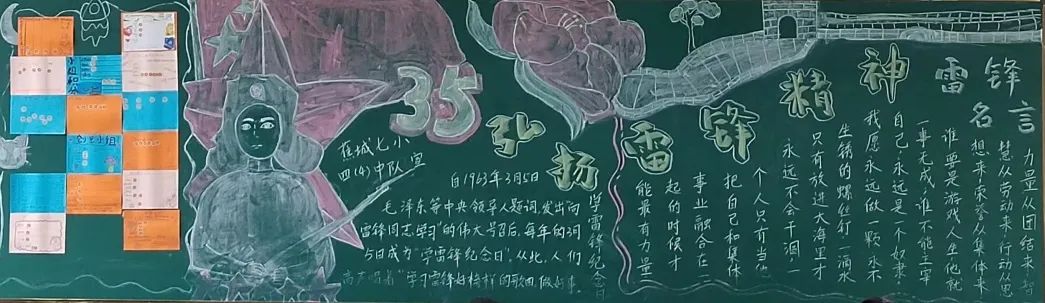 35
弘扬雷锋精神
蕉城七小
四(4)中队 宣
自1963年3月5日
毛泽东等中央领导人题词,发出“向
雷锋同志学习”的伟大号召后,每年的3月
5日成为“学雷锋纪念日”。从此,人们
高声唱着“学习雷锋好榜样”的歌曲,做好事.
学雷锋纪念日
雷锋名言
力量从团结来,智
慧从劳动来,行动从思
想来,荣誉从集体来
谁要是游戏人生,他就
一事无成,谁不能主宰
自己,永远是一个奴隶
我愿永远做一颗永不
生锈的螺丝钉 一滴水
只有放进大海里才
永远不会干涸,一
个人只有当他
把自己和集体
事业融合在一
起的时候才
能最有力量
小组积分